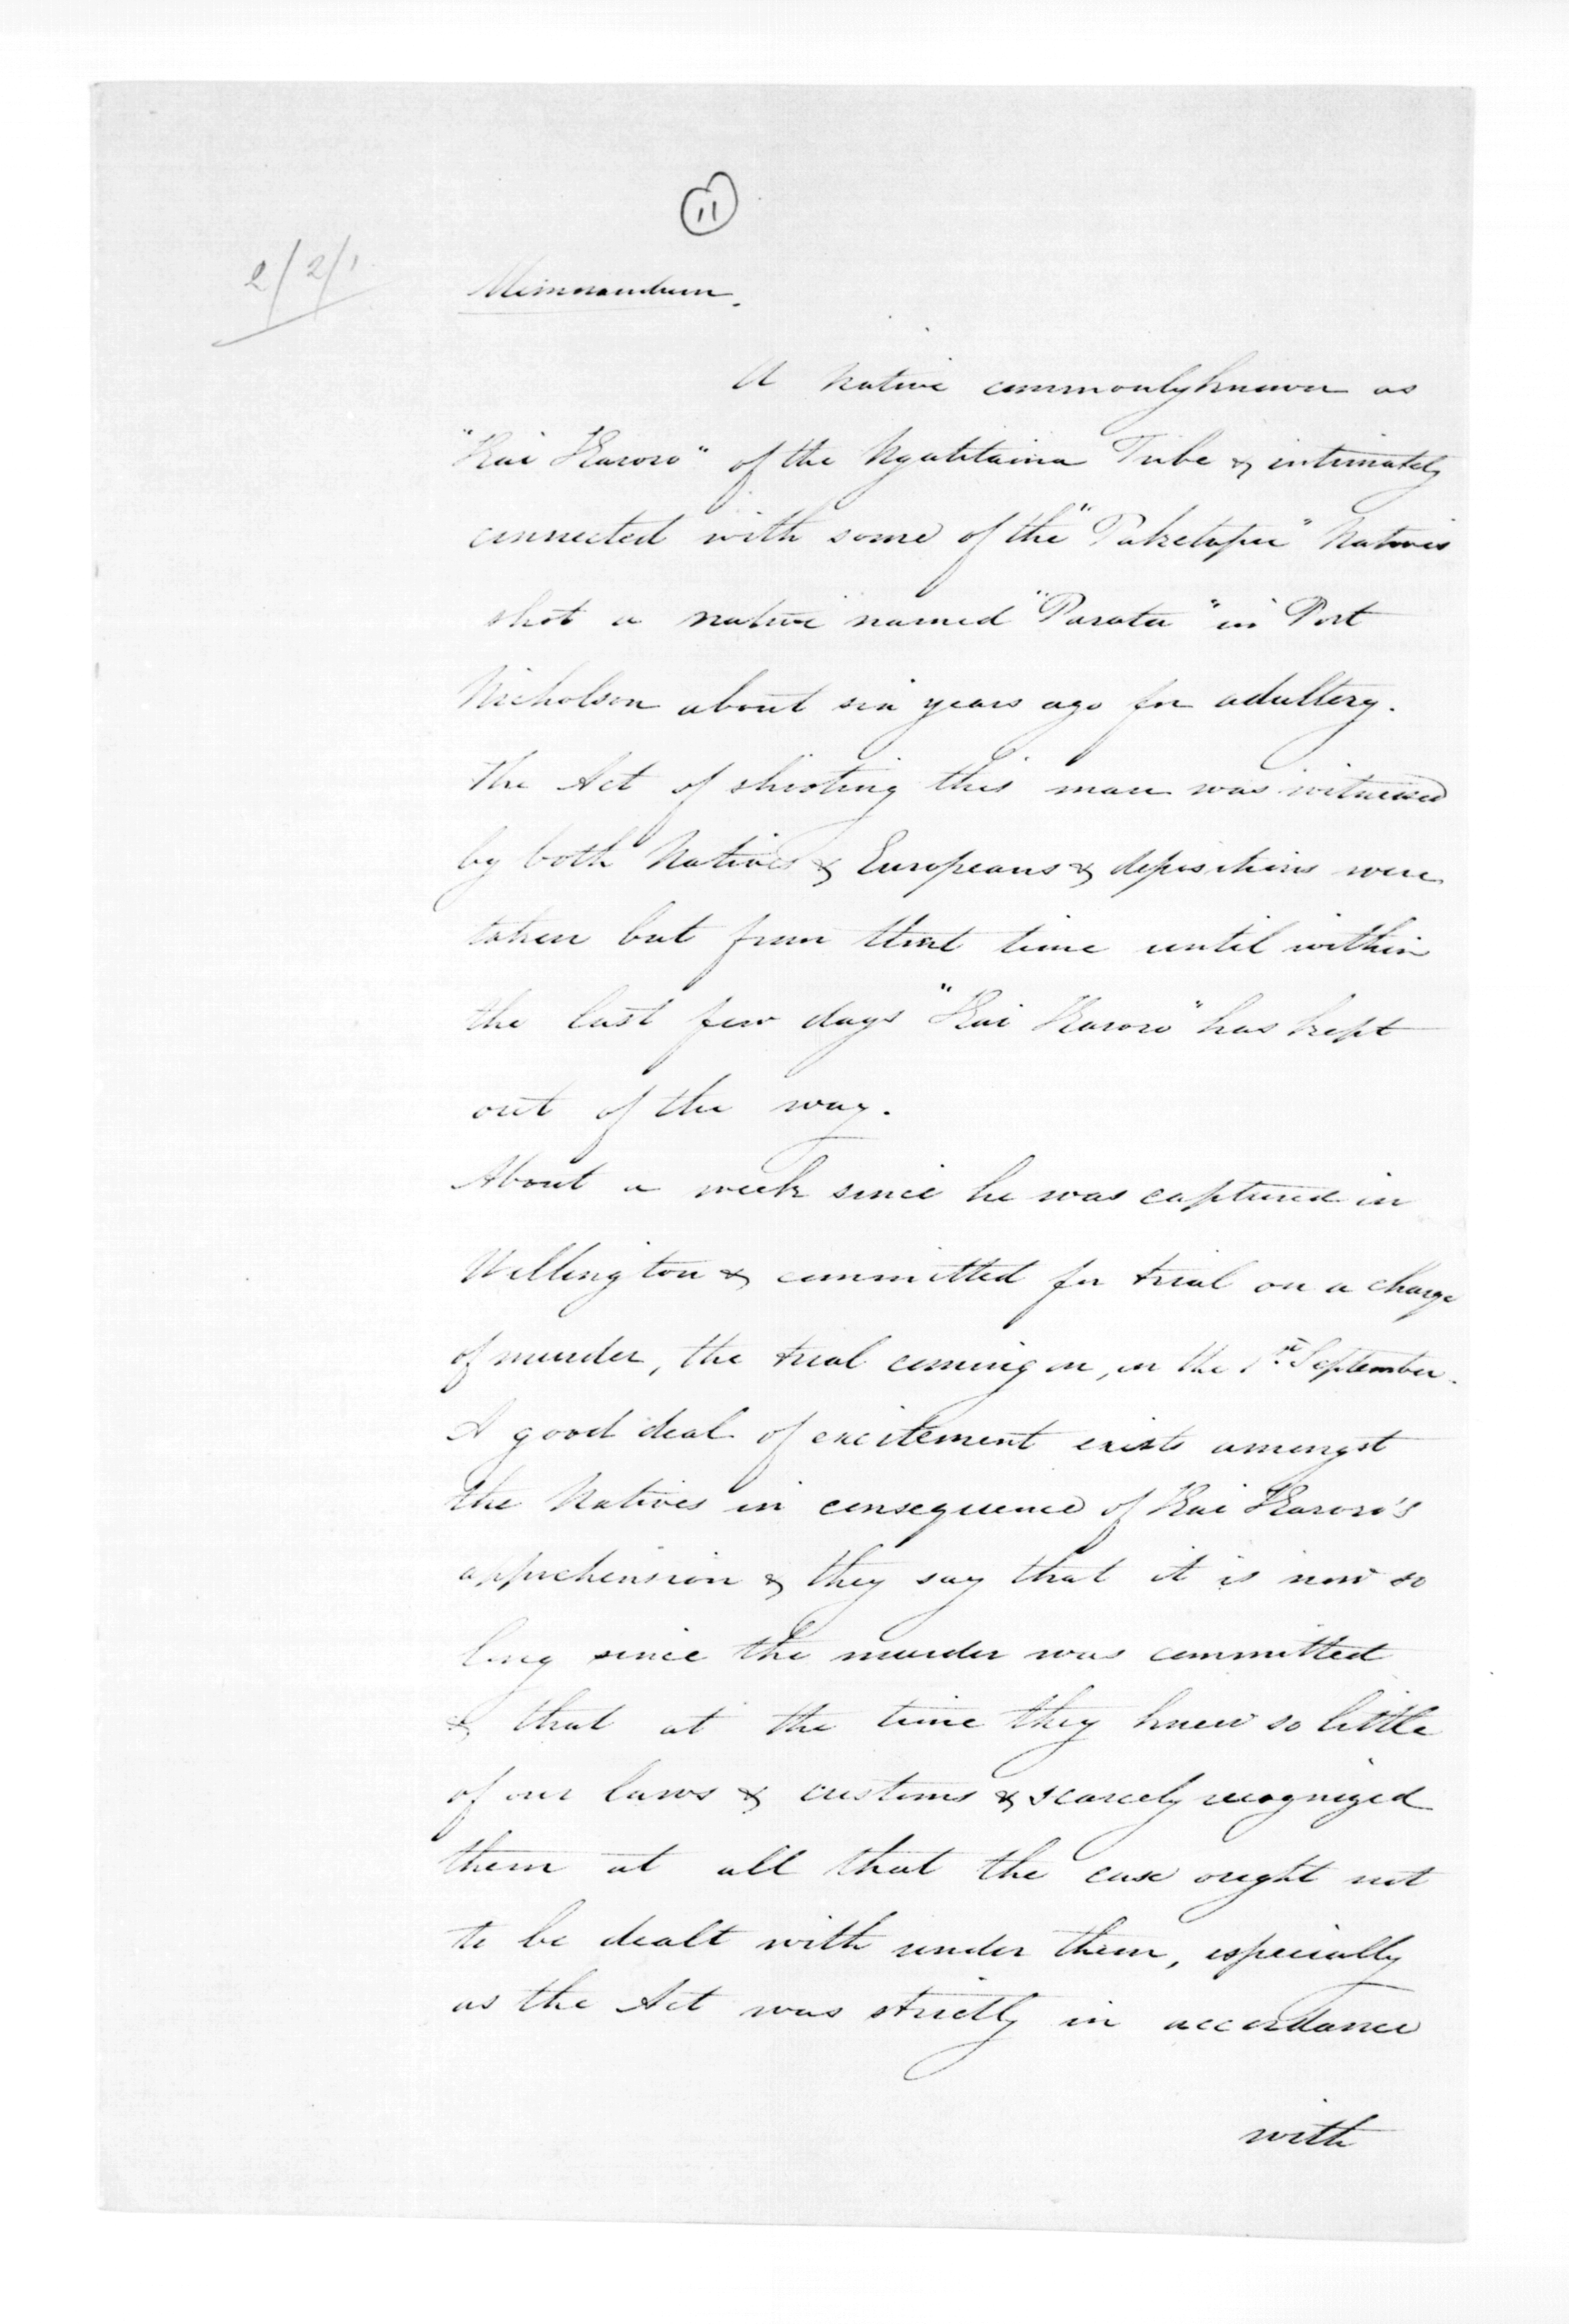 11
2/2/1
Memorandum.
A Native commonly known as
"Kai Karoro" of the Ngatitama Tribe & intimately
connected with some of the "Paketapu" Natives
shot a native named "Parata" in Port
Nicholson about six years ago for adultery.
The Act of shooting this man was witnessed
by both Natives & Europeans & depositions were
taken but from that time until within
the last few days "Kai Karoro" has kept
out of the way.
About a week since he was captured in
Wellington & committed for trial on a charge
of murder, the trial coming on, on the 1st September.
A good deal of excitement exists amongst
the Natives in consequence of Kai Karoro's
apprehension & they say that it is now so
long since the murder was committed
& that at the time they knew so little
of our laws & customs & scarcely recognized
them at all that the case ought not
to be dealt with under them, especially
as the Act was strictly in accordance
with